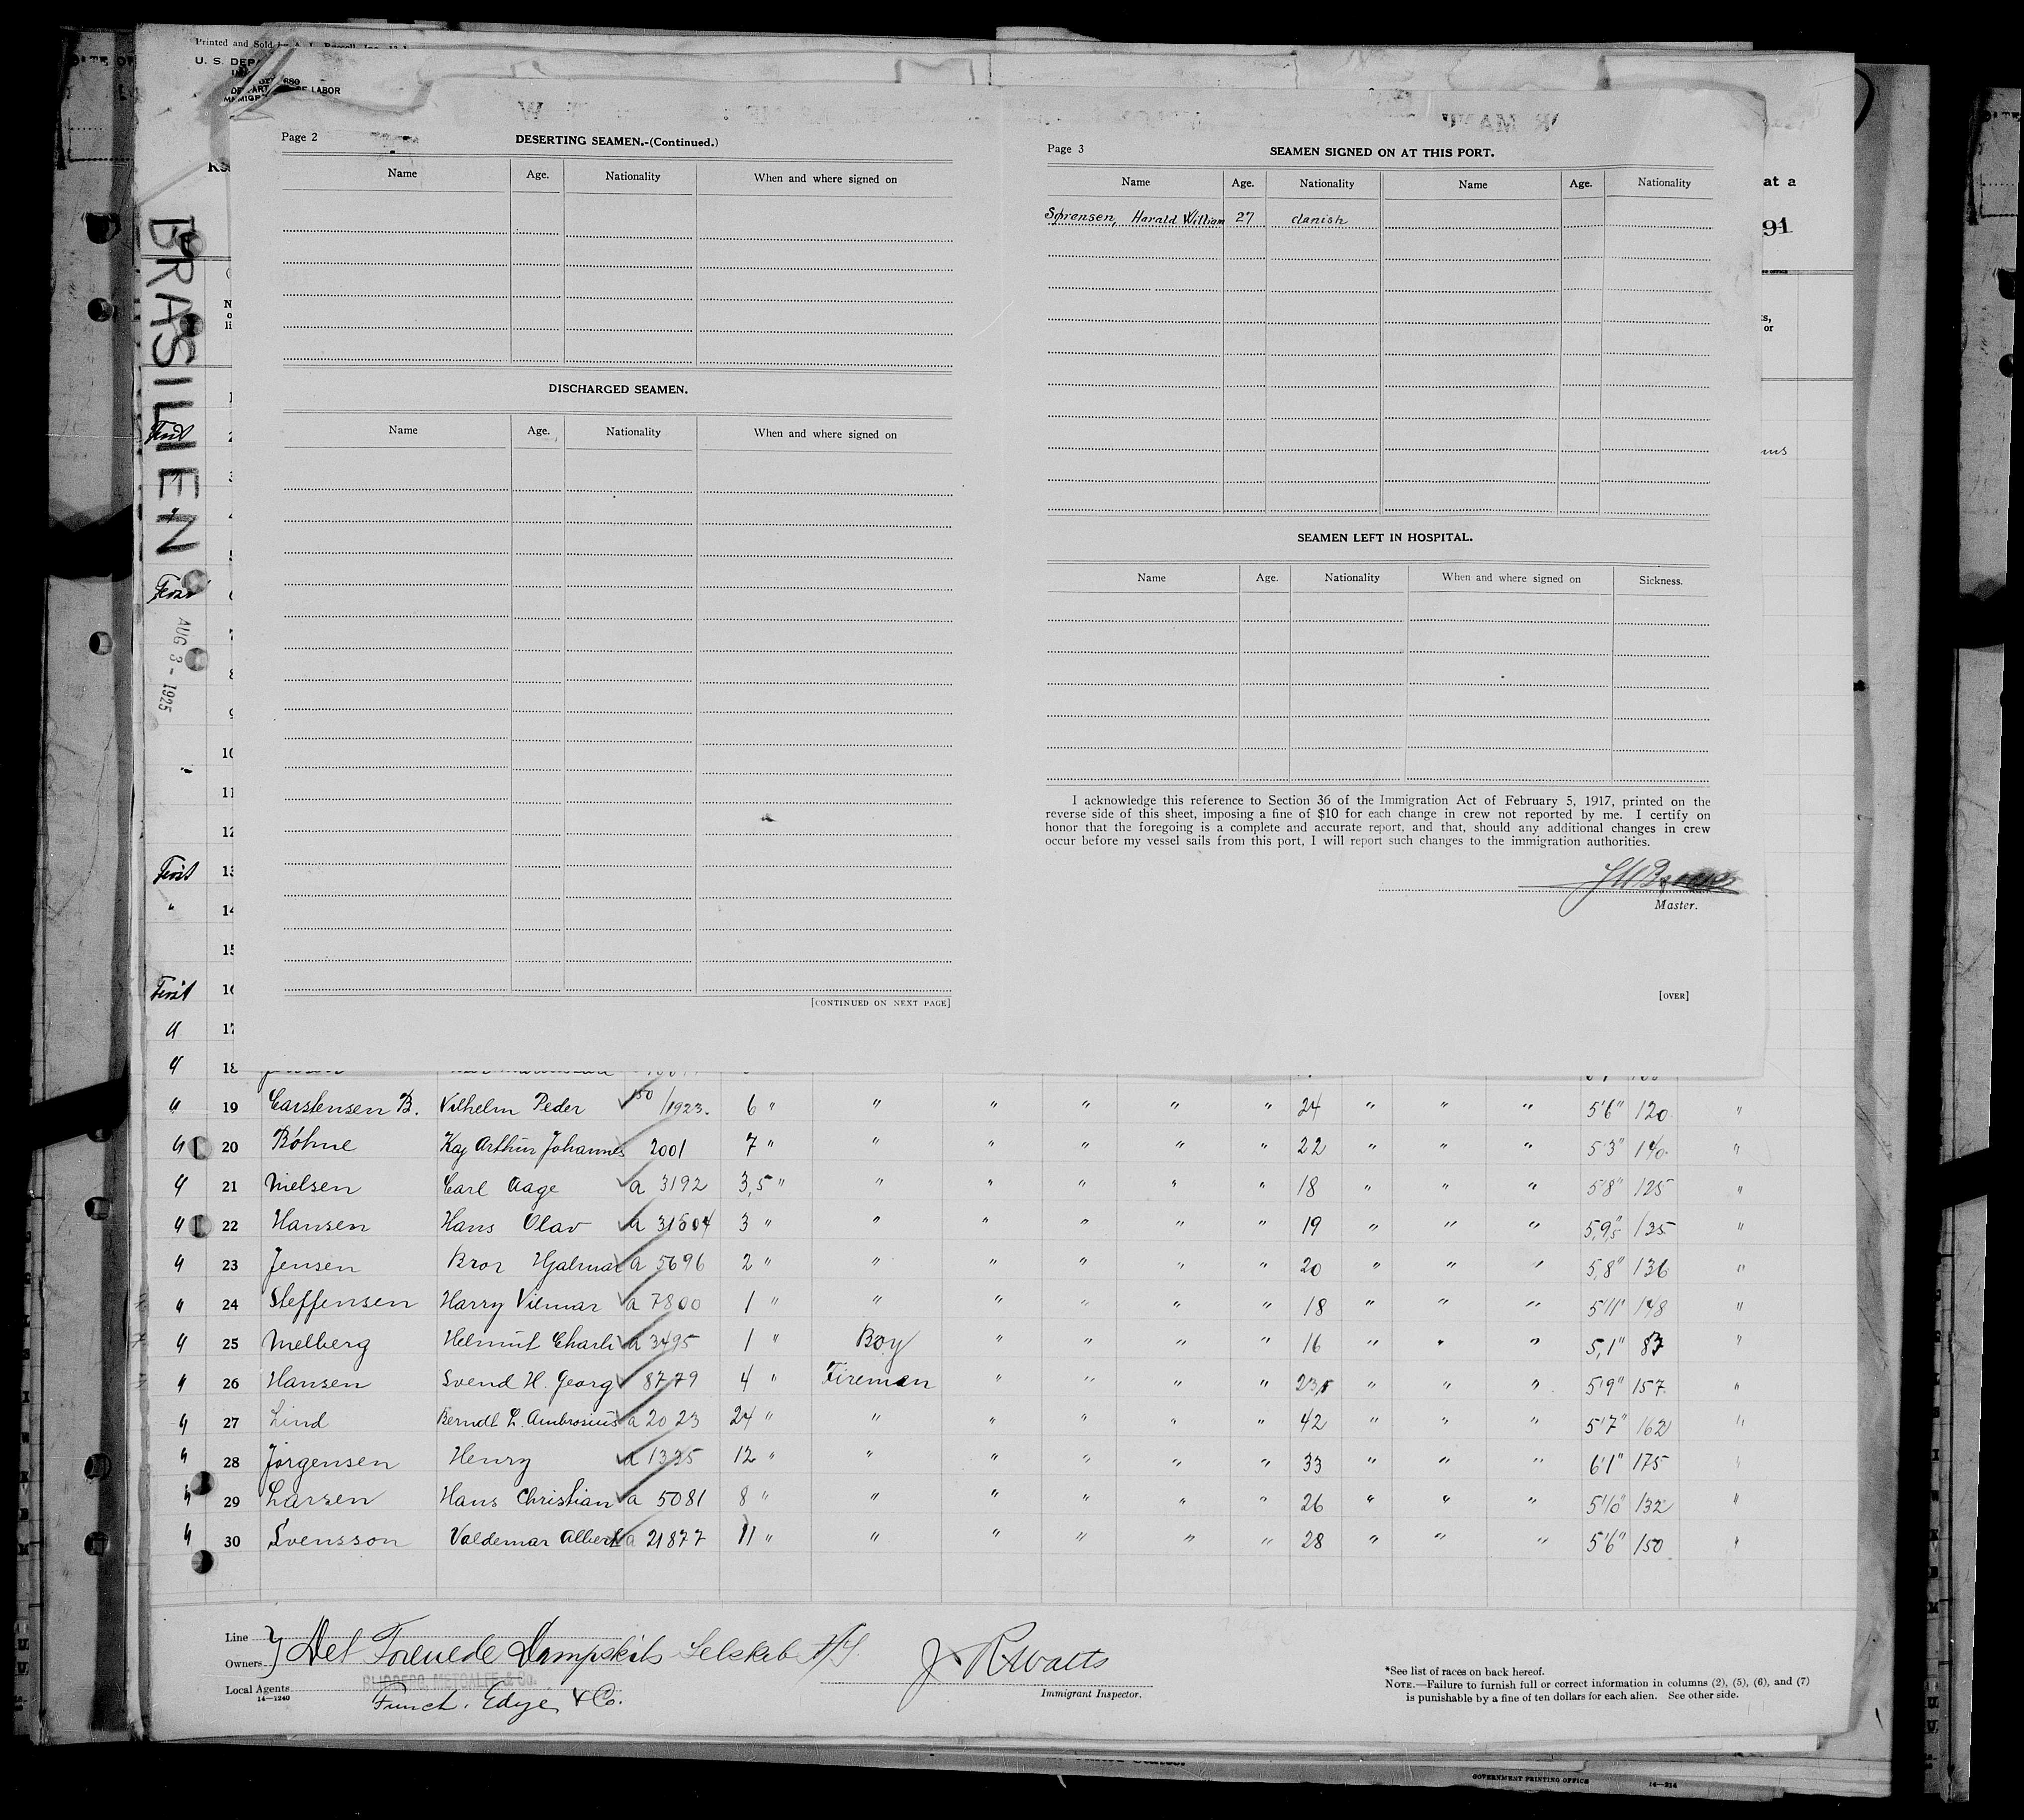 Printed and Sold by
U. S. DEPA
OF LABOR
BRASILIEN
First
First
AUG 3 - 1925
First
"
First
at a
91
Page 2
DESERTING SEAMEN.-(Continued.)
Name Age. Nationality When and where signed on
DISCHARGED SEAMEN.
Name Age. Nationality When and where signed on
[CONTINUED ON NEXT PAGE]
Page 3
SEAMEN SIGNED ON AT THIS PORT.
Name Age. Nationality Name Age. Nationality
Sørensen, Harald William 27 danish
SEAMEN LEFT IN HOSPITAL.
Name Age. Nationality When and where signed on Sickness.
I acknowledge this reference to Section 36 of the Immigration Act of February 5, 1917, printed on the
reverse side of this sheet, imposing a fine of $10 for each change in crew not reported by me. I certify on
honor that the foregoing is a complete and accurate report, and that, should any additional changes in crew
occur before my vessel sails from this port, I will report such changes to the immigration authorities.
Master.
[OVER]
10
11
12
14
17
18
" 19 Carstensen B. Vilhelm Peder 150/1923. 6 " " " " " " 24 " " " 5'6" 120 "
" 20 Böhne Kaj Arthur Johannes 2001 7 " " " " " " 22 " " " 5'3" 140 "
" 21 Nielsen Carl Aage a 3192 3,5 " " " " " " 18 " " " 5'8" 125 "
" 22 Hansen Hans Olav a 31504 3 " " " " " " 19 " " " 5,9,5" 135 "
" 23 Jensen Bror Hjalmar a 5696 2 " " " " " " 20 " " " 5,8" 136 "
" 24 Steffensen Harry Vilmar a 7800 1 " " " " " " 18 " " " 5'11" 148 "
" 25 Melberg Helmut Charli a 3495 1 " Boy " " " " 16 " " " 5,1" 83 "
" 26 Hansen Svend H. Georg 8779 4 " Fireman " " " " 23 " " " 5'9" 157 "
" 27 Lind Berndt L. Ambrosius a 2023 24 " " " " " " 42 " " " 5'7" 162 "
" 28 Jørgensen Henry a 1325 12 " " " " " " 33 " " " 6'1" 175 "
" 29 Larsen Hans Christian a 5081 8 " " " " " " 26 " " " 5'10" 132 "
" 30 Svensson Valdemar Albert a 21877 11 " " " " " " 28 " " " 5'6" 150 "
Line
Owners Det Forenede Dampskibs Selskab A/S
Local Agents
14—1240
Funch, Edye & Co.
J R Watts
Immigrant Inspector.
*See list of races on back hereof.
NOTE.—Failure to furnish full or correct information in columns (2), (5), (6), and (7)
is punishable by a fine of ten dollars for each alien. See other side.
GOVERNMENT PRINTING OFFICE 14—214